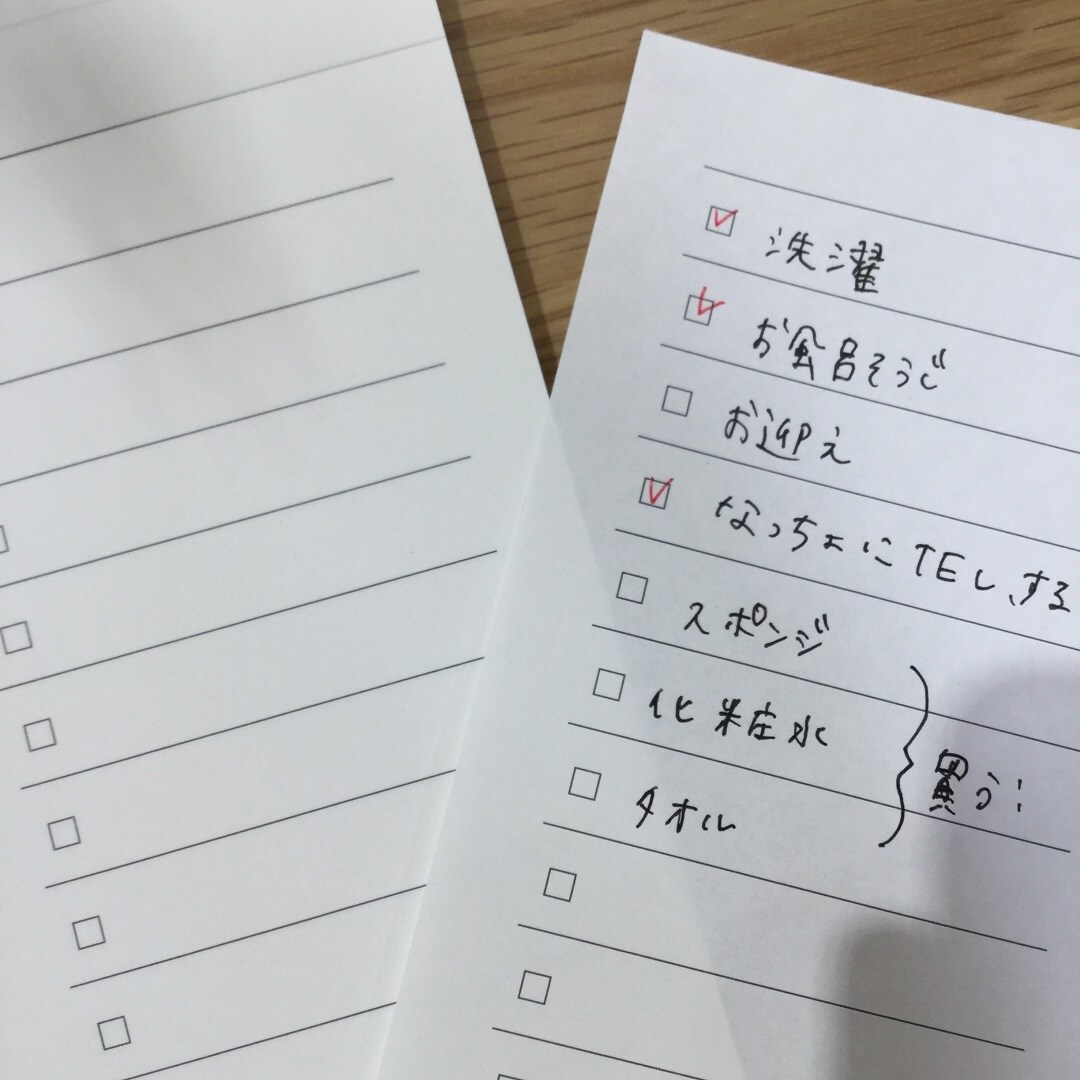 洗濯
お風呂そうじ
お迎え
なっちょにTELする
スポンジ
化粧水
タオル
買う!